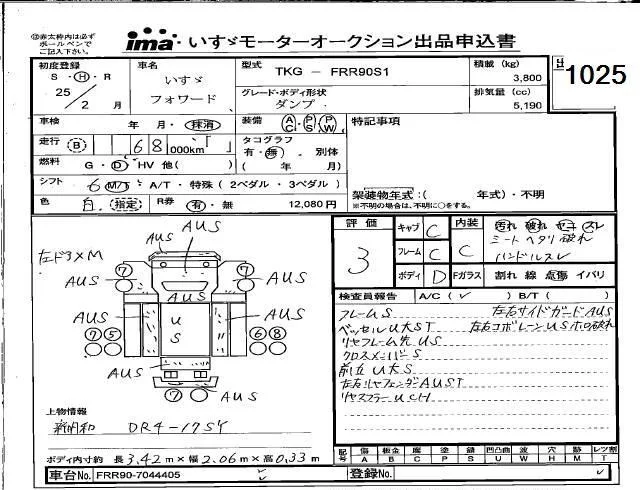 ◎赤太枠内は必ず
ボールペンで
ご記入下さい。
ima いすゞモーターオークション出品申込書
1025
初度登録 S・H・R 25/2月
車名 いすゞ フォワード
型式 TKG － FRR90S1
積載 (kg) 3,800
グレード・ボディ形状 ダンプ
排気量 (cc) 5,190
車検 年 月・抹消
装備 AC PS PW
特記事項
走行 B 68 000km「 」
タコグラフ 有・無 別体
( 年 月)
燃料 G・D・HV 他( )
シフト 6 M/T・A/T・特殊(2ペダル・3ペダル)
架装物年式:( 年式)・不明
※不明の場合は、不明に○をする。
色 白 指定 R券 有・無 12,080円
評価 3
キャブ C
フレーム C
ボディ D
内装 C
汚れ 破れ コキ スレ
シートヘタリ破れ
ハンドルスレ
Fガラス 割れ 線 点傷 イバリ
左ド3×M
AUS
⑦ ⑦
AUS AUS
AUS
AUS US AUS
⑦⑤ ⑥⑧
AUS
⑦ AUS
検査員報告 A/C(✓) B/T( )
フレームS 左右サイドガードAUS
ベッセルU大ST 左右コボレーンUSホロ破れ
リヤフレーム先US
クロスメンバーS
前立U大S
左右リヤフェンダAUST
リヤスフラーUCH
上物情報
新明和 DR4-17SY
ボディ内寸約 長3.42m×幅2.06m×高0.33m
記号 傷A 板金B 腐C 塗P 錆S 凹凸曲U 波W 穴H 跡M レツ割T
車台No. FRR90-7044405
登録No.